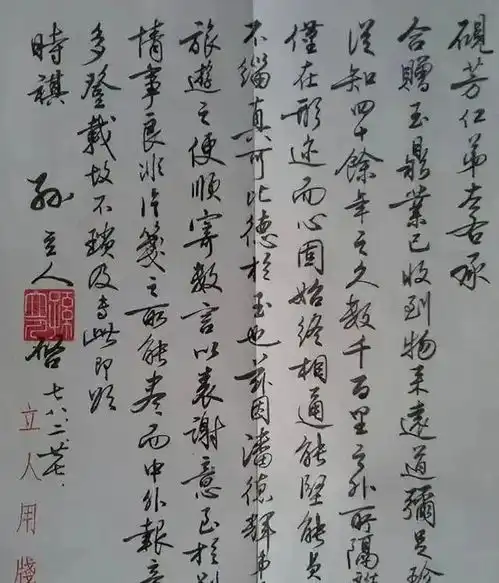 硯芳仁弟大右承
合贈玉鼎業已收到物來遠道彌足珍
從知四十餘年之久數千百里之外所隔
僅在形迹而心固始終相通能堅能貞
不緇真可比德於玉也茲因潘德輝弟
旅遊之便順寄數言以表謝意至於別
情事良非片箋之所能盡而中外報章
多登載故不瑣及專此即頌
時祺 孫立人 啓 七八、二、廿七、
立人用牋